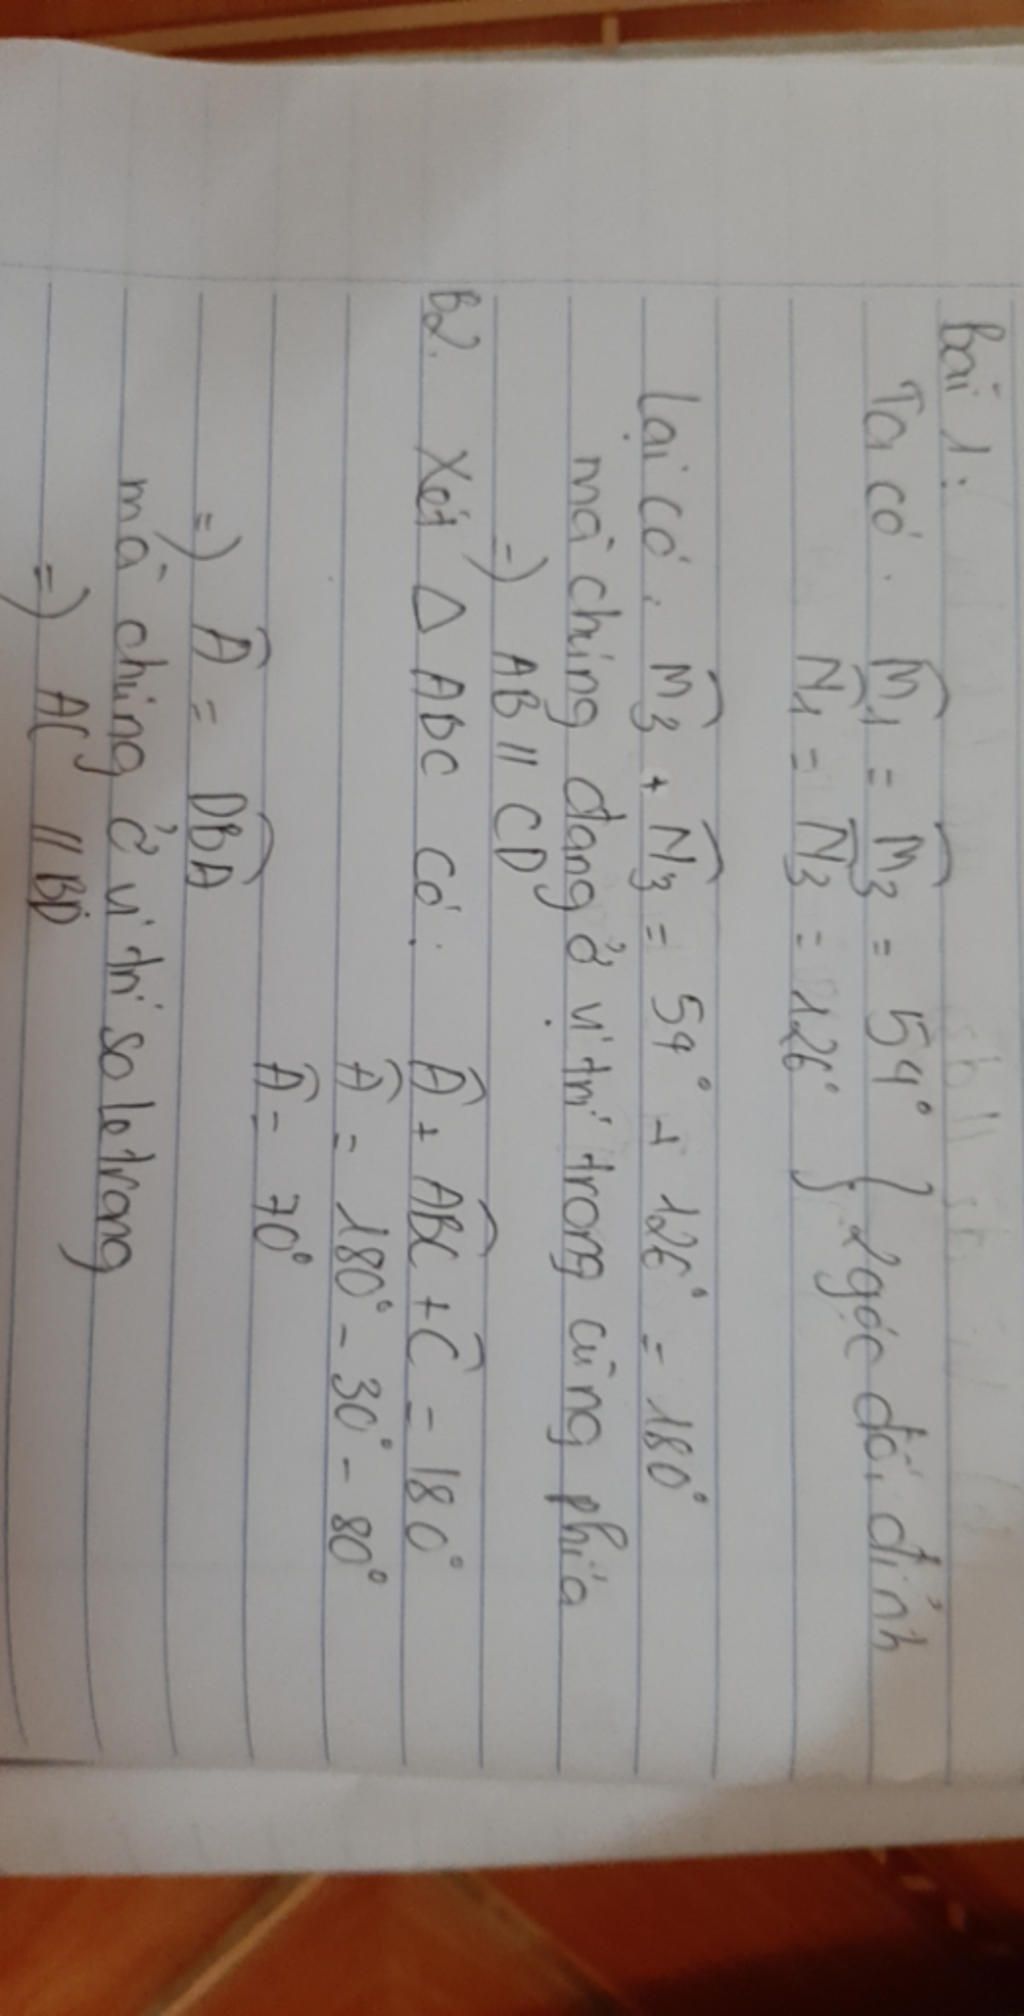 Bài 1:
Ta có. M̂1 = M̂3 = 54° } 2 góc đối đỉnh
N̂1 = N̂3 = 126° }
Lại có. M̂3 + N̂3 = 54° + 126° = 180°
mà chúng đang ở vị trí trong cùng phía
=) AB // CD
B2. Xét Δ ABC có: Â + ABC + Ĉ = 180°
Â = 180° - 30° - 80°
Â = 70°
=) Â = DBA
mà chúng ở vị trí so le trong
=) AC // BD